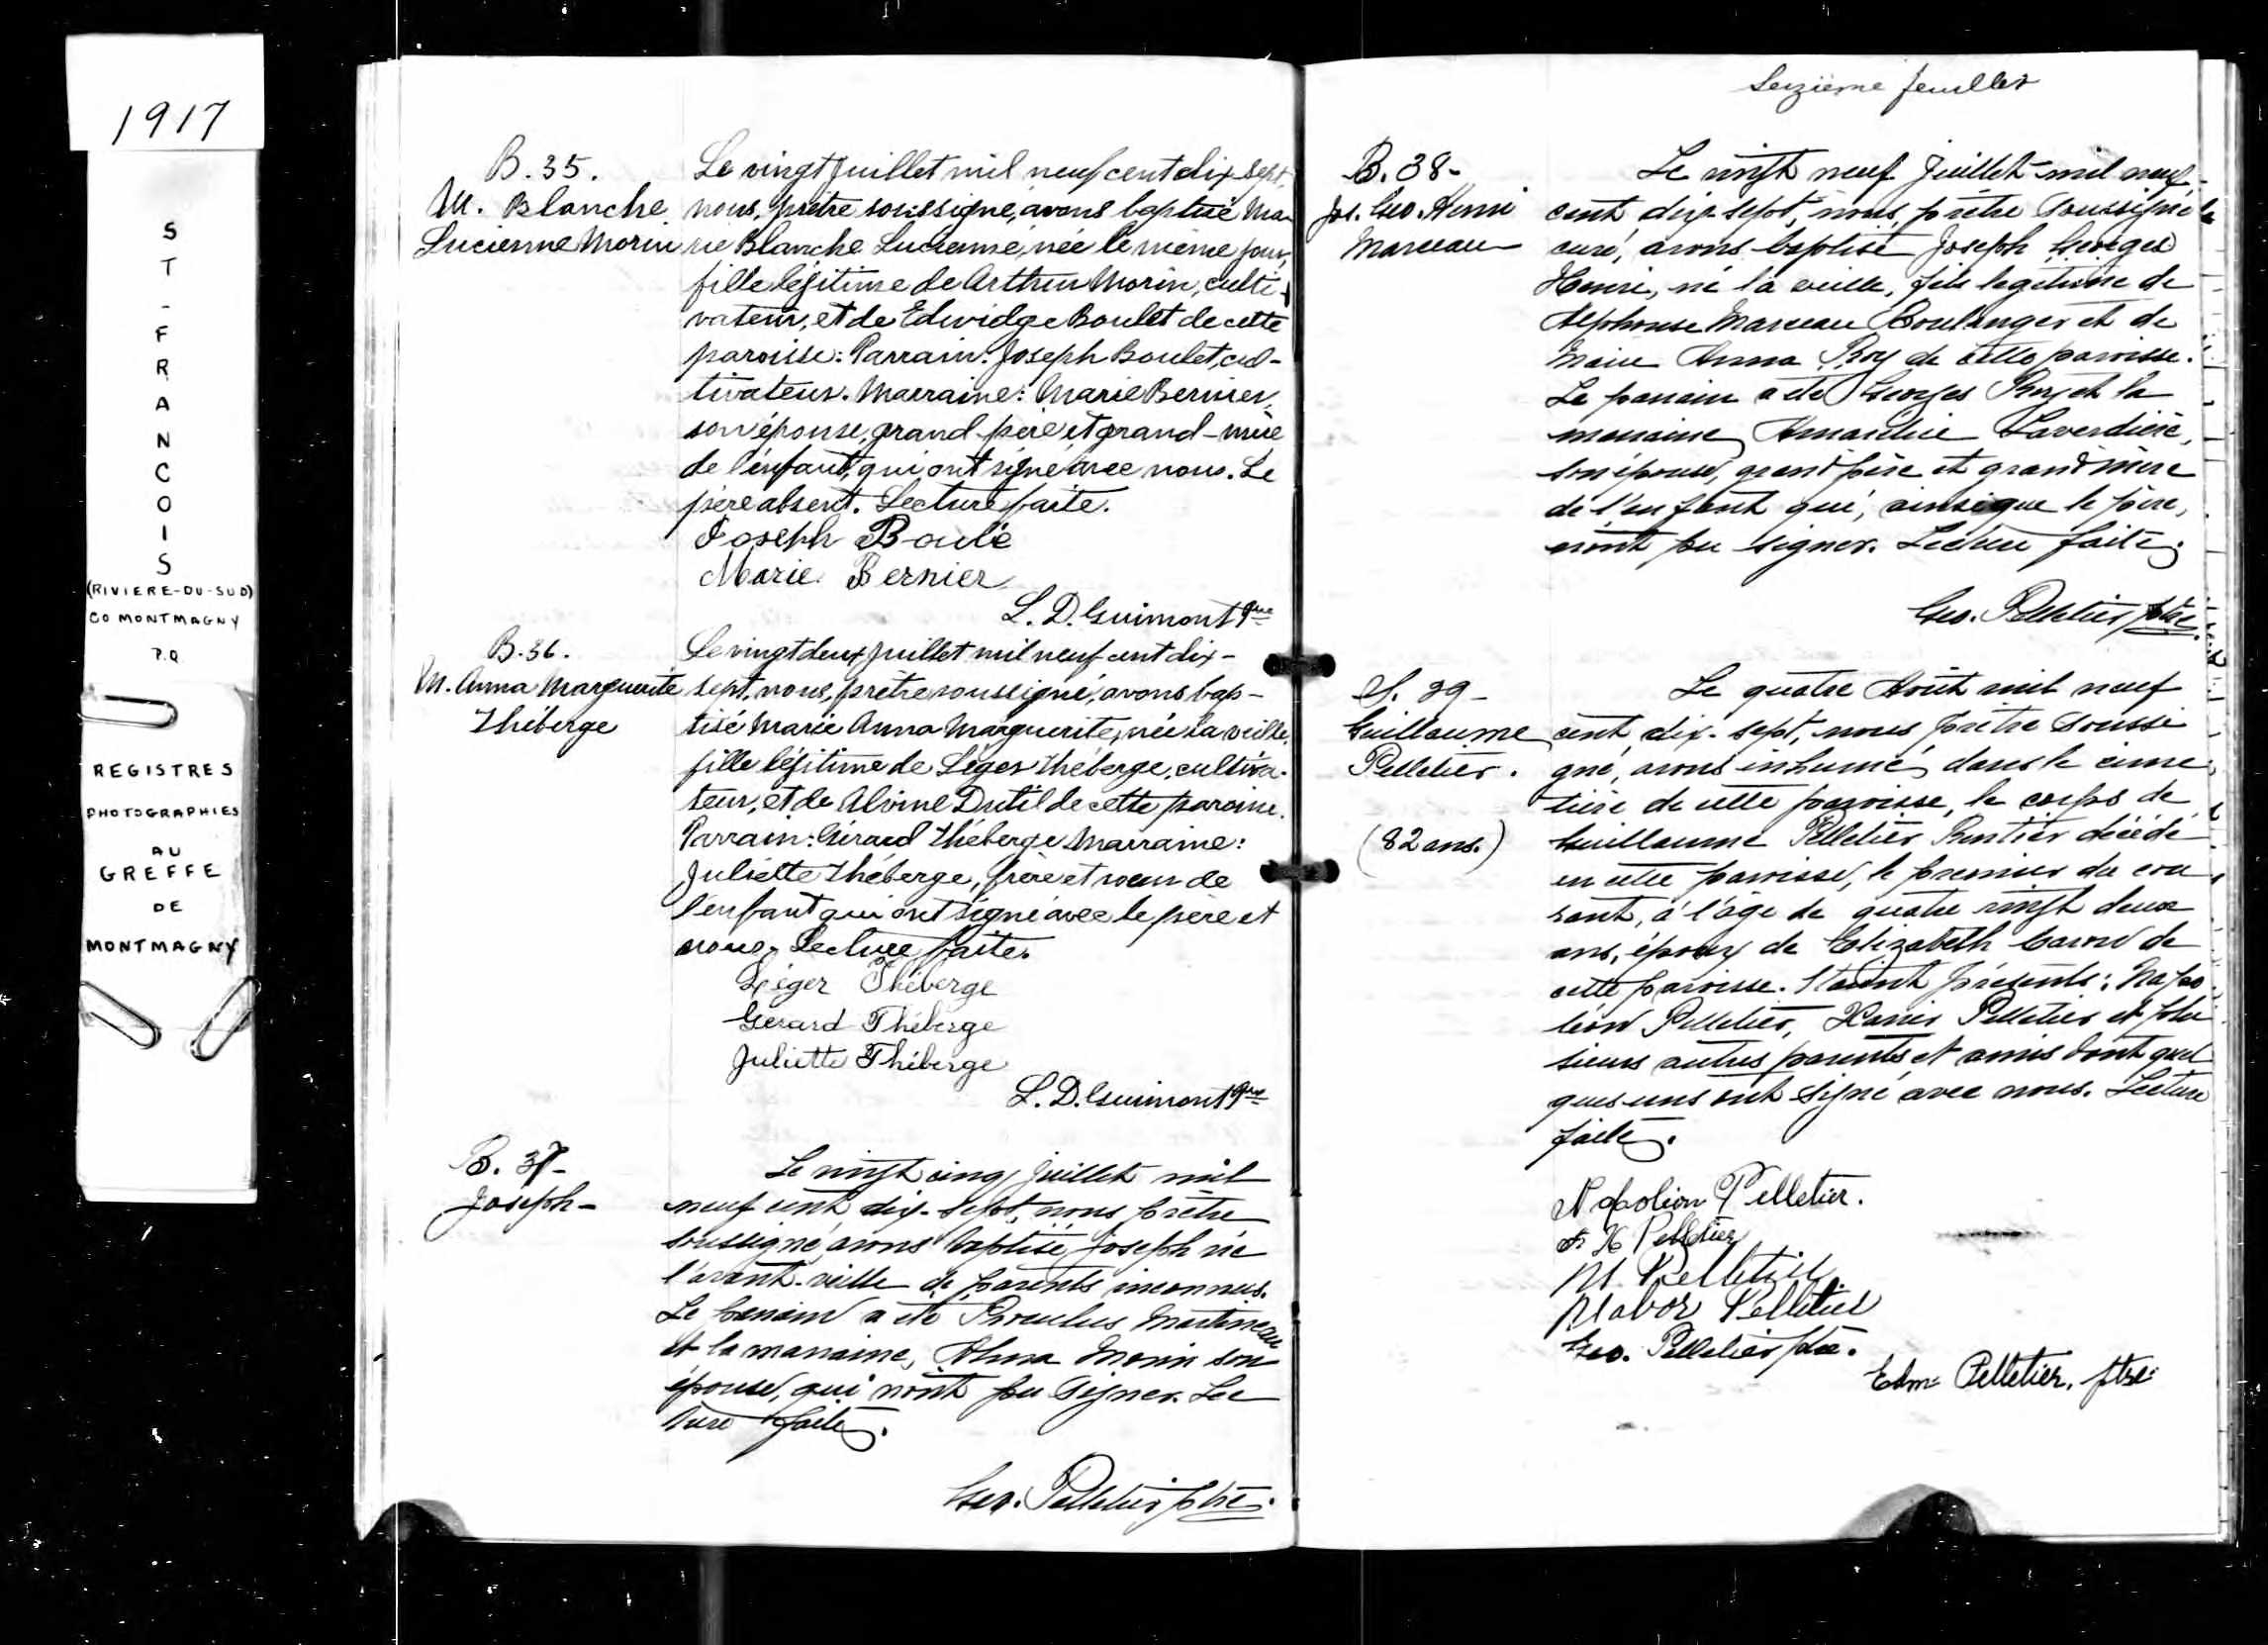 1917
ST-FRANCOIS
(RIVIERE-DU-SUD)
CO MONTMAGNY
P.Q
REGISTRES
PHOTOGRAPHIES
AU
GREFFE
DE
MONTMAGNY
B. 35.
M. Blanche
Lucienne Morin
Le vingt juillet mil neuf cent dix-sept,
nous, prêtre soussigné, avons baptisé Ma-
rie Blanche Lucienne, née le même jour,
fille légitime de Arthur Morin, culti-
vateur, et de Edwidge Boulet de cette
paroisse. Parrain: Joseph Boulet, cul-
tivateur. Marraine: Marie Bernier,
son épouse, grand-père et grand-mère
de l'enfant, qui ont signé avec nous. Le
père absent. Lecture faite.
Joseph Boulé
Marie Bernier
L. D. Guimont
B. 36.
M. Anna Marguerite
Théberge
Le vingt deux juillet mil neuf cent dix-
sept, nous, prêtre soussigné, avons bap-
tisé Marie Anna Marguerite, née la veille,
fille légitime de Léger Théberge, cultiva-
teur, et de Alvine Dutil de cette paroisse.
Parrain: Gérard Théberge Marraine:
Juliette Théberge, frère et soeur de
l'enfant qui ont signé avec le père et
nous. Lecture faite.
Léger Théberge
Gérard Théberge
Juliette Théberge
L. D. Guimont
B. 37-
Joseph-
Le vingt cinq juillet mil
neuf cent dix-sept, nous prêtre
soussigné avons baptisé Joseph né
l'avant-veille de parents inconnus.
Le parrain a été Proculus Martineau
et la marraine, Alma Morin son
épouse, qui n'ont pu signer. Lec
ture faite.
Geo. Pelletier ptre.
Seizième feuillet
B. 38-
Jos. Geo. Henri
Marceau
Le vingt neuf Juillet mil neuf
cent dix-sept, nous, prêtre soussigné
curé, avons baptisé Joseph Georges
Henri, né la veille, fils légitime de
Alphonse Marceau Boulanger et de
Marie Anna Roy de cette paroisse.
Le parrain a été Georges Roy et la
marraine Amandine Laverdière,
son épouse, grand père et grand mère
de l'enfant qui, ainsi que le père,
n'ont pu signer. Lecture faite.
Geo. Pelletier ptre.
S. 39-
Guillaume
Pelletier.
(82 ans.)
Le quatre Août mil neuf
cent, dix-sept, nous prêtre soussi
gné, avons inhumé dans le cime
tière de cette paroisse, le corps de
Guillaume Pelletier Rentier décédé
en cette paroisse, le premier du cou
rant, à l'âge de quatre vingt deux
ans, époux de Elizabeth Caron de
cette paroisse. Étaient présents: Napo
léon Pelletier, Xavier Pelletier et plu
sieurs autres parents et amis dont quel
ques uns ont signé avec nous. Lecture
faite.
Napoléon Pelletier.
F. X Pelletier
M. Pelletier
Nabor Pelletier
Geo. Pelletier ptre.
Edm: Pelletier, ptre: